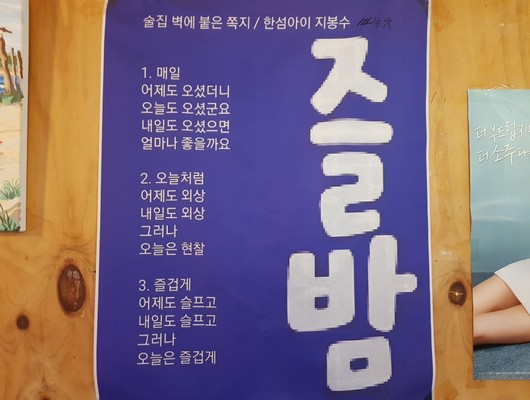 술집 벽에 붙은 쪽지 / 한섬아이 지봉수
즐밤
1. 매일
어제도 오셨더니
오늘도 오셨군요
내일도 오셨으면
얼마나 좋을까요
2. 오늘처럼
어제도 외상
내일도 외상
그러나
오늘은 현찰
3. 즐겁게
어제도 슬프고
내일도 슬프고
그러나
오늘은 즐겁게
더 부드럽게
더 소주다